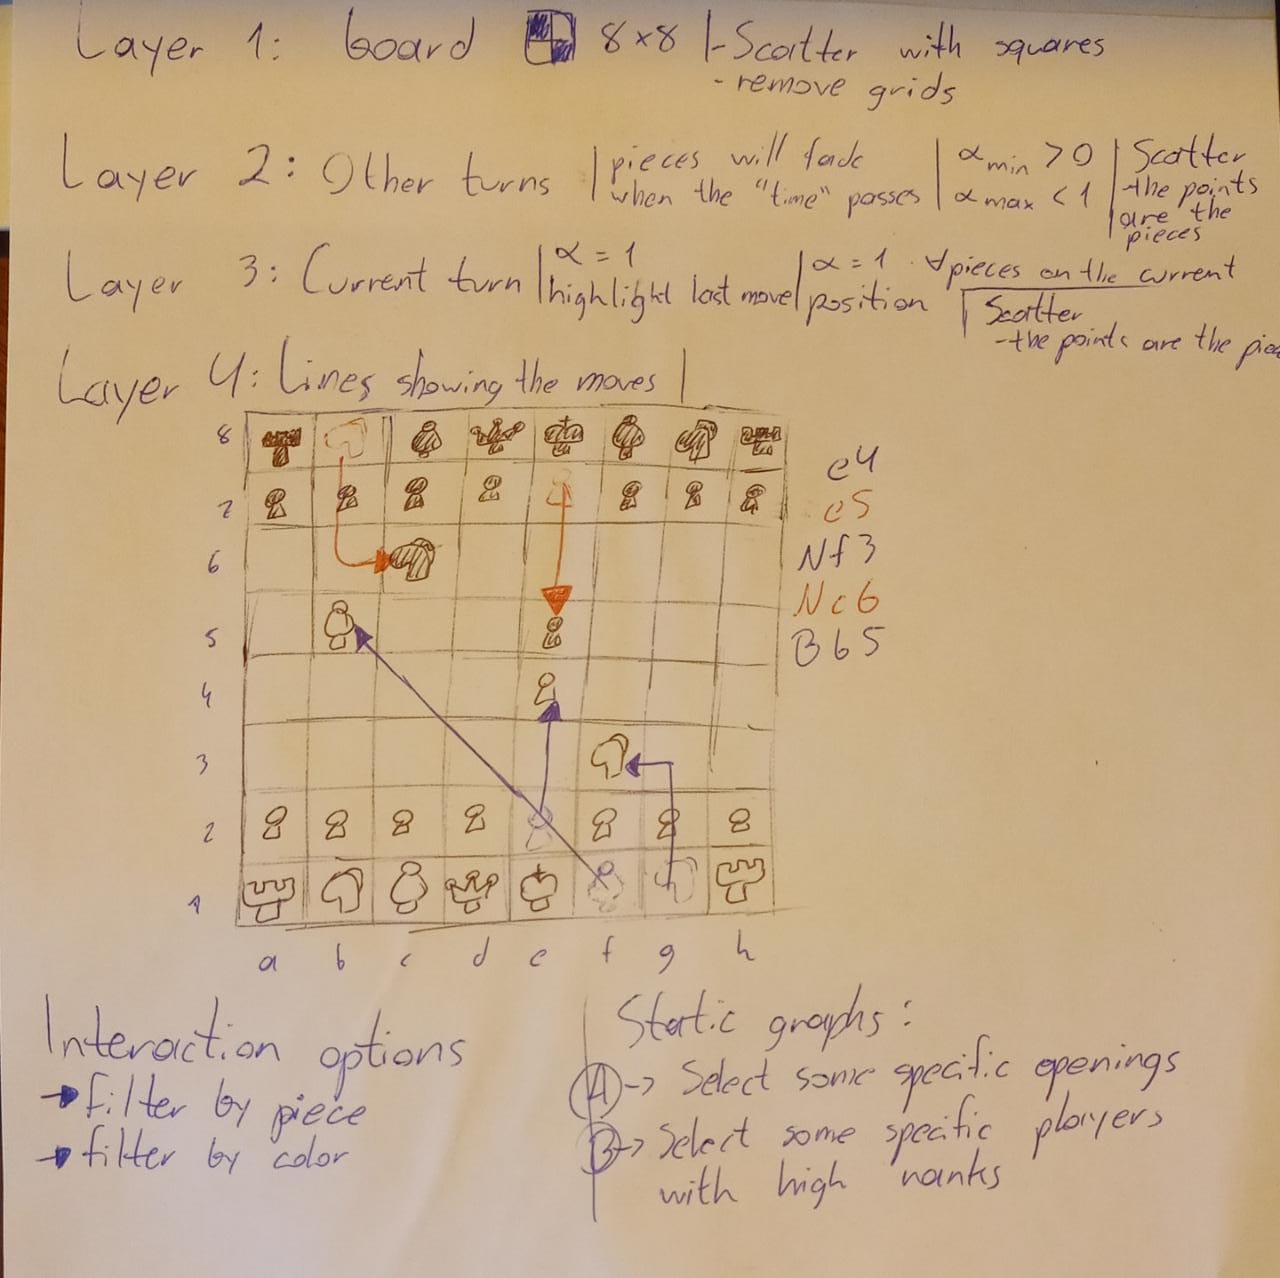 Layer 1: board 8x8 |- Scatter with squares
- remove grids
Layer 2: Other turns | pieces will fade when the "time" passes | α min > 0 α max < 1 | Scatter the points are the pieces
Layer 3: Current turn | α = 1 highlight last move | α = 1 ∀ pieces on the current position
Scatter
- the points are the
Layer 4: Lines showing the moves |
8
7
6
5
4
3
2
1
a b c d e f g h
e4
e5
Nf3
Nc6
Bb5
Interaction options
→ filter by piece
→ filter by color
Static graphs:
A -> Select some specific openings
B -> Select some specific players
with high ranks